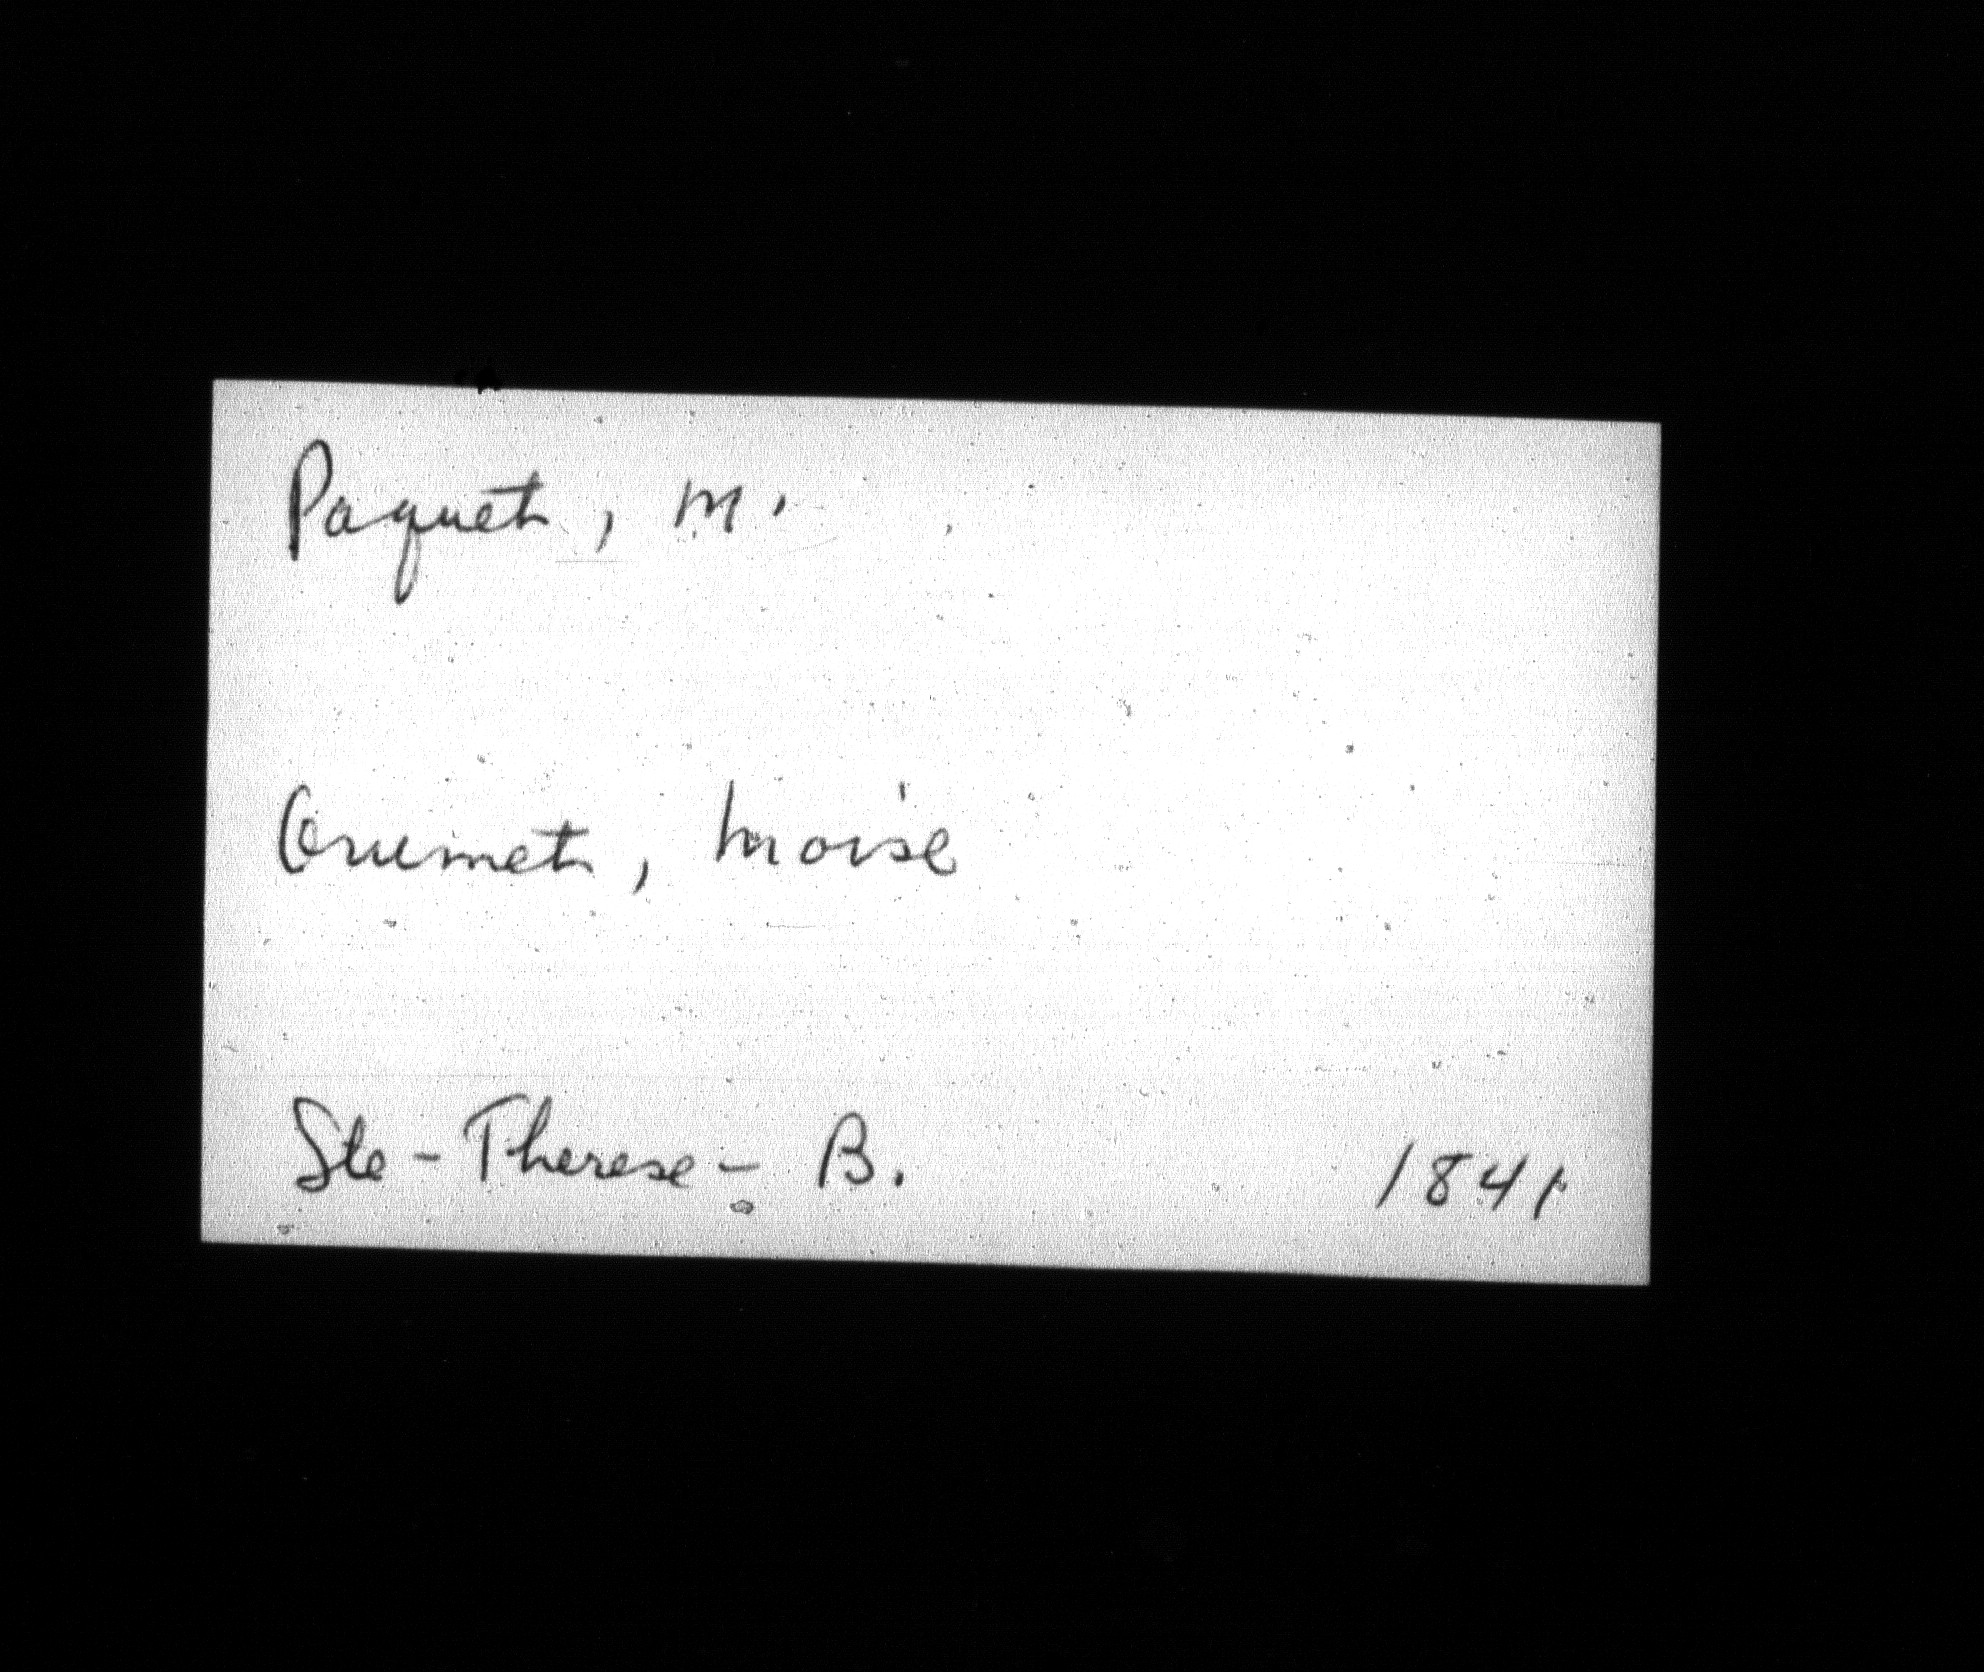 Paquet, M.
Ouimet, Moise
Ste-Therese-B. 1841